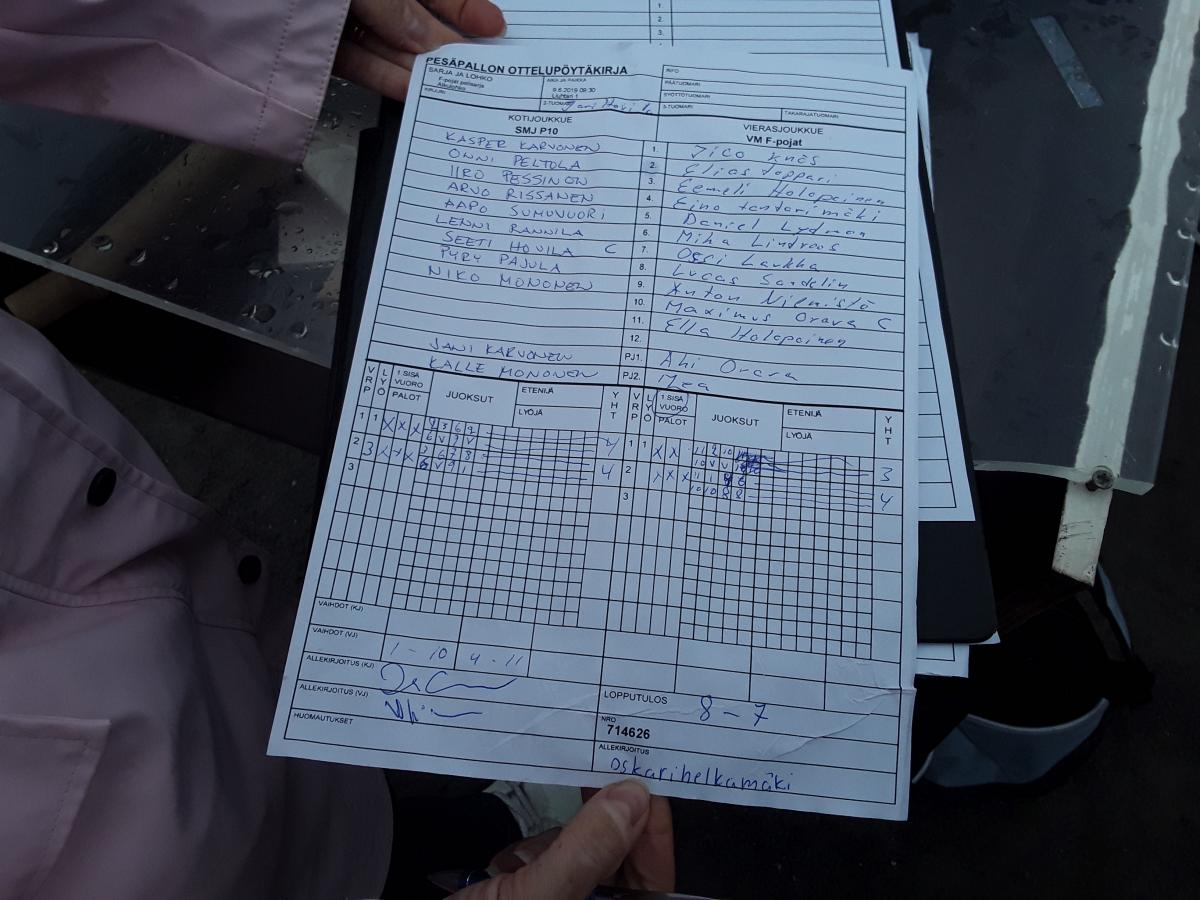 1.
2.
3.
PESÄPALLON OTTELUPÖYTÄKIRJA
SARJA JA LOHKO
F-pojat pelisarja
Alkulohko
AIKA JA PAIKKA
9.6.2019 09:30
Liuhtari 1
INFO
PÄÄTUOMARI
SYÖTTÖTUOMARI
KIRJURI
2-TUOMARI
3-TUOMARI
TAKARAJATUOMARI
KOTIJOUKKUE
SMJ P10
VIERASJOUKKUE
VM F-pojat
KASPER KARVONEN 1.
ONNI PELTOLA 2. Elias
IIRO PESSINON 3. Eemeli Holopainen
ARVO RISSANEN 4. Eino
AAPO SUMUVUORI 5. Daniel Lydman
LENNI RANNILA 6. Miha Lindroos
SEETI HOVILA C 7. Ossi
PYRY PAJULA 8. Lucas Sandelin
NIKO MONONEN 9. Anton Niemistö
10. Maximus Orava C
11. Ella Holopainen
12.
JANI KARVONEN PJ1. Ahi Orava
KALLE MONONEN PJ2.
VRP LYÖ 1 SISÄ VUORO PALOT JUOKSUT ETENIJÄ LYÖJÄ YHT VRP LYÖ 1 SISÄ VUORO PALOT JUOKSUT ETENIJÄ LYÖJÄ YHT
1 1 X X X 4 1 1 X X 3
2 3 X X X 4 2 X X X 4
3 3
VAIHDOT (KJ)
VAIHDOT (VJ) 1 - 10 4 - 11
ALLEKIRJOITUS (KJ)
ALLEKIRJOITUS (VJ)
LOPPUTULOS 8 - 7
HUOMAUTUKSET
NRO
714626
ALLEKIRJOITUS
oskarihelkamäki